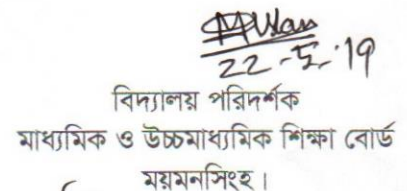 22-5-'19
বিদ্যালয় পরিদর্শক
মাধ্যমিক ও উচ্চমাধ্যমিক শিক্ষা বোর্ড
ময়মনসিংহ।